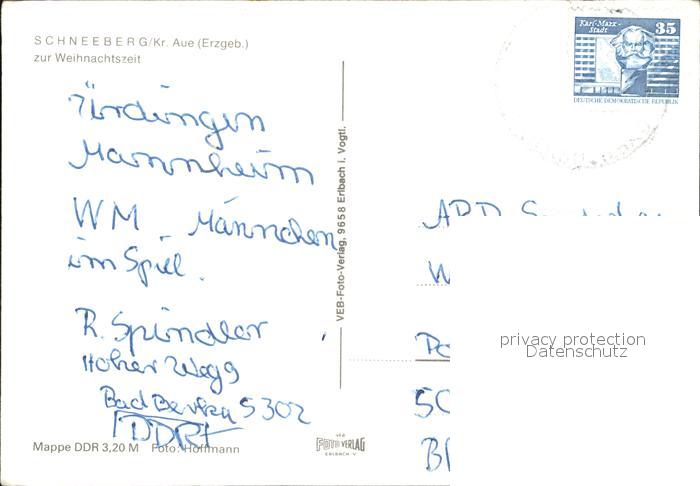 SCHNEEBERG/Kr. Aue (Erzgeb.)
zur Weihnachtszeit
Karl-Marx-
Stadt
35
DEUTSCHE DEMOKRATISCHE REPUBLIK
Mannheim
WM Männchen
im Spiel.
R. Spindler
Hoher Weg 9
Bad Berka 5302
DDR
Mappe DDR 3,20 M Foto: Hoffmann
VEB-Foto-Verlag, 9658 Erlbach i. Vogtl.
VEB
FOTO VERLAG
ERLBACH V
ARD
W
privacy protection
Datenschutz